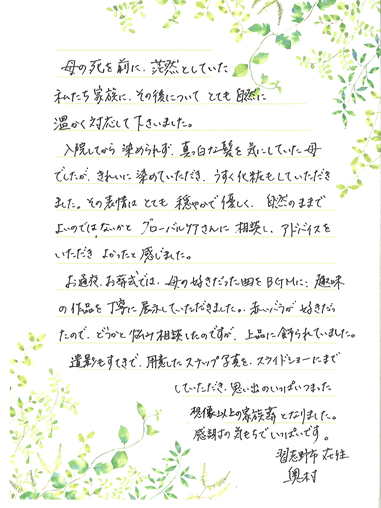 母の死を前に、茫然としていた
私たち家族に、その後について とても自然に
温かく対応して下さいました。
入院してから 染められず、真っ白な髪を 気にしていた 母
でしたが、きれいに 染めていただき、うすく化粧もしていただき
ました。その表情は とても 穏やかで優しく、自然のままで
よいのでは、ないかと グローバルケアさんに 相談し、アドバイスを
いただき よかったと 感じました。
お通夜、お葬式では、母の好きだった曲をBGMに、趣味
の作品を 丁寧に 展示していただきました。赤いバラが 好きだっ
たので、どうかと 悩み 相談したのですが、上品に 飾られていました。
遺影もすてきで、用意したスナップ写真を、スライドショーにまで
していただき、思い出のいっぱいつまった
想像以上の家族葬 となりました。
感謝の気もちで いっぱいです。
習志野市 在住
奥村